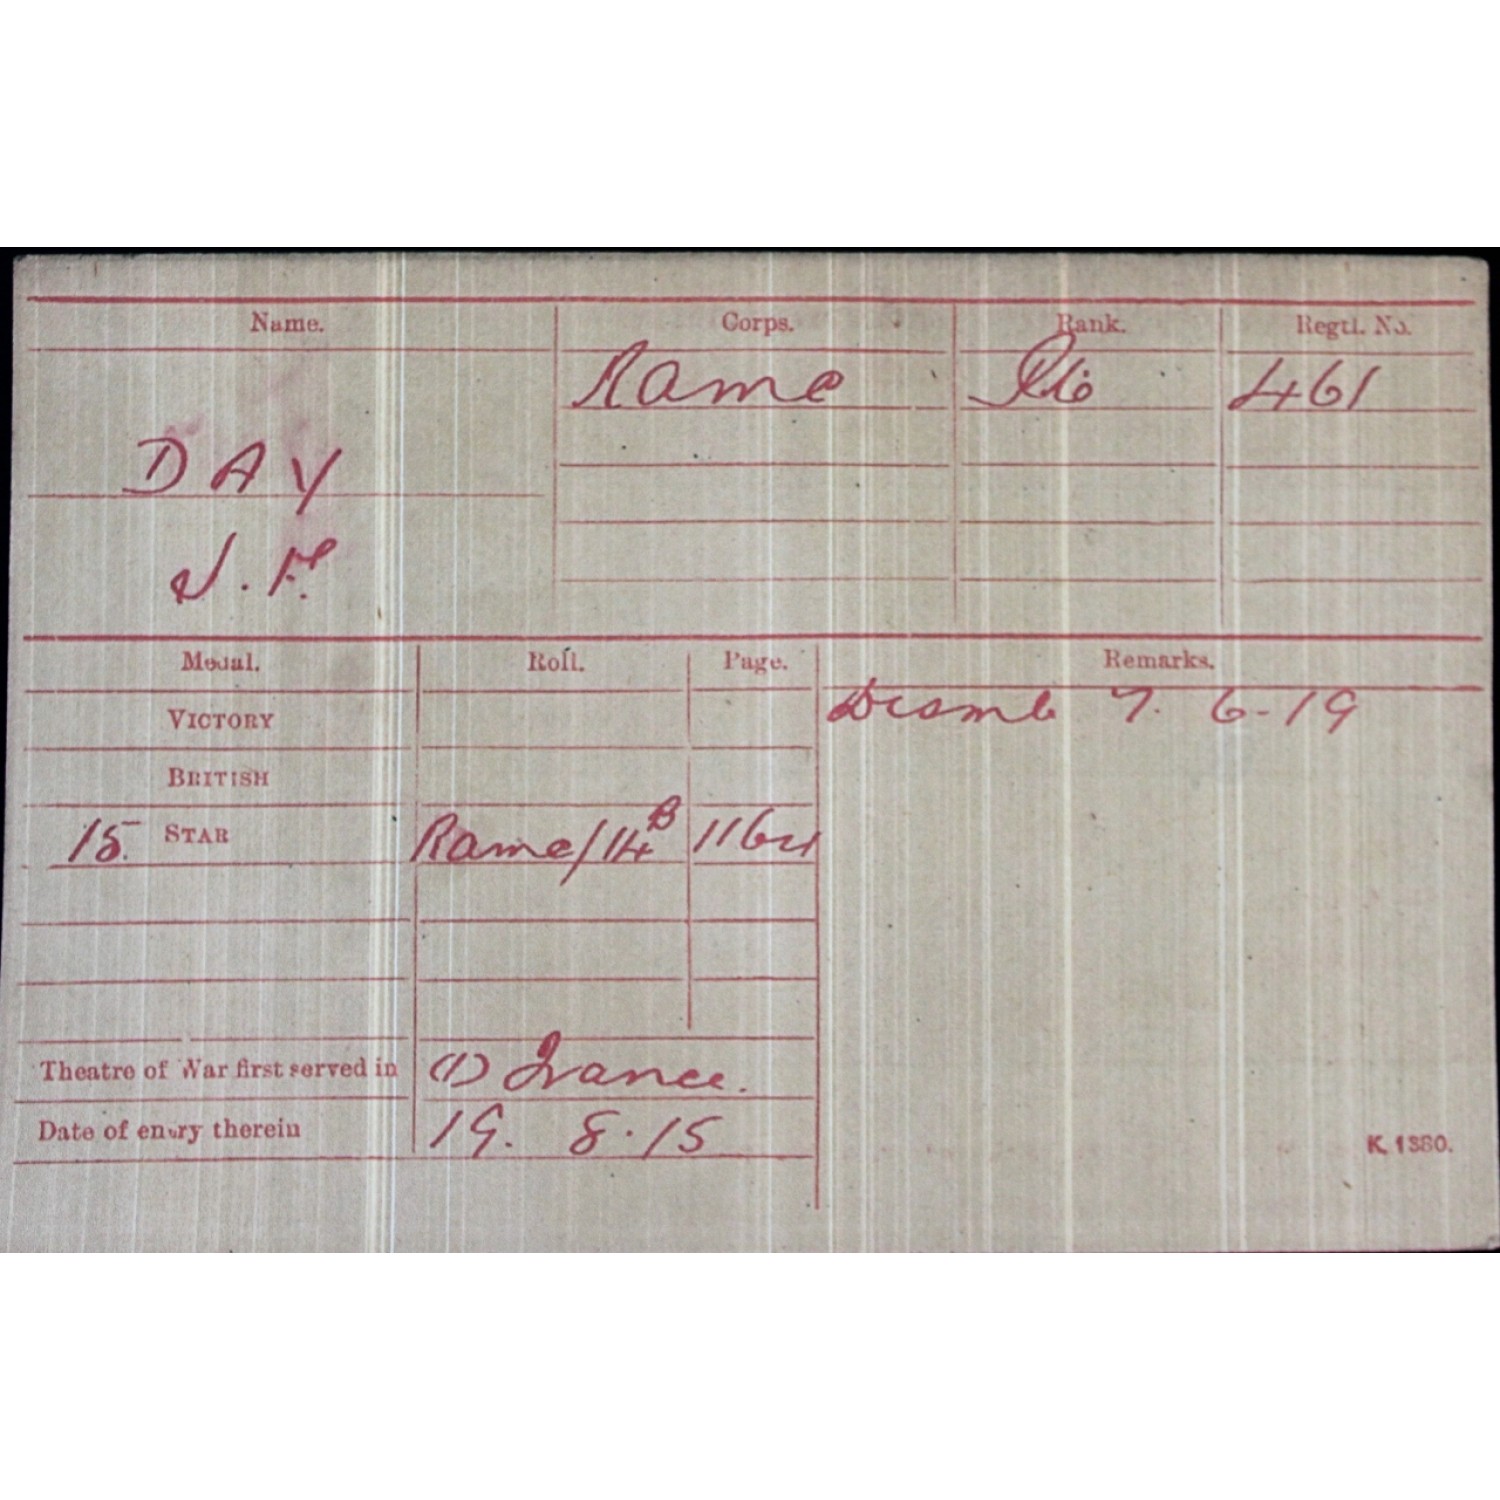 Name. Corps. Rank. Regtl. No.
RAMC Pte 461
DAY
J. H.
Medal. Roll. Page. Remarks.
VICTORY Disemb 7. 6-19
BRITISH
15 STAR RAMC/14B 1164
Theatre of War first served in (1) France.
Date of entry therein 19. 8.15
K. 1380.